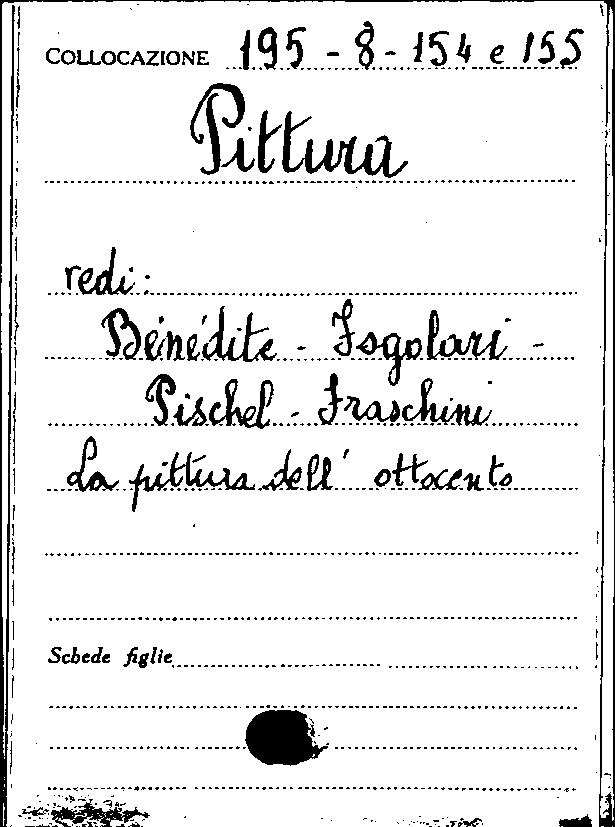 COLLOCAZIONE 195 - 8 - 154 e 155
Pittura
redi:
Bénédite - Fogolari -
Pischel - Fraschini
La pittura dell' ottocento
Schede figlie